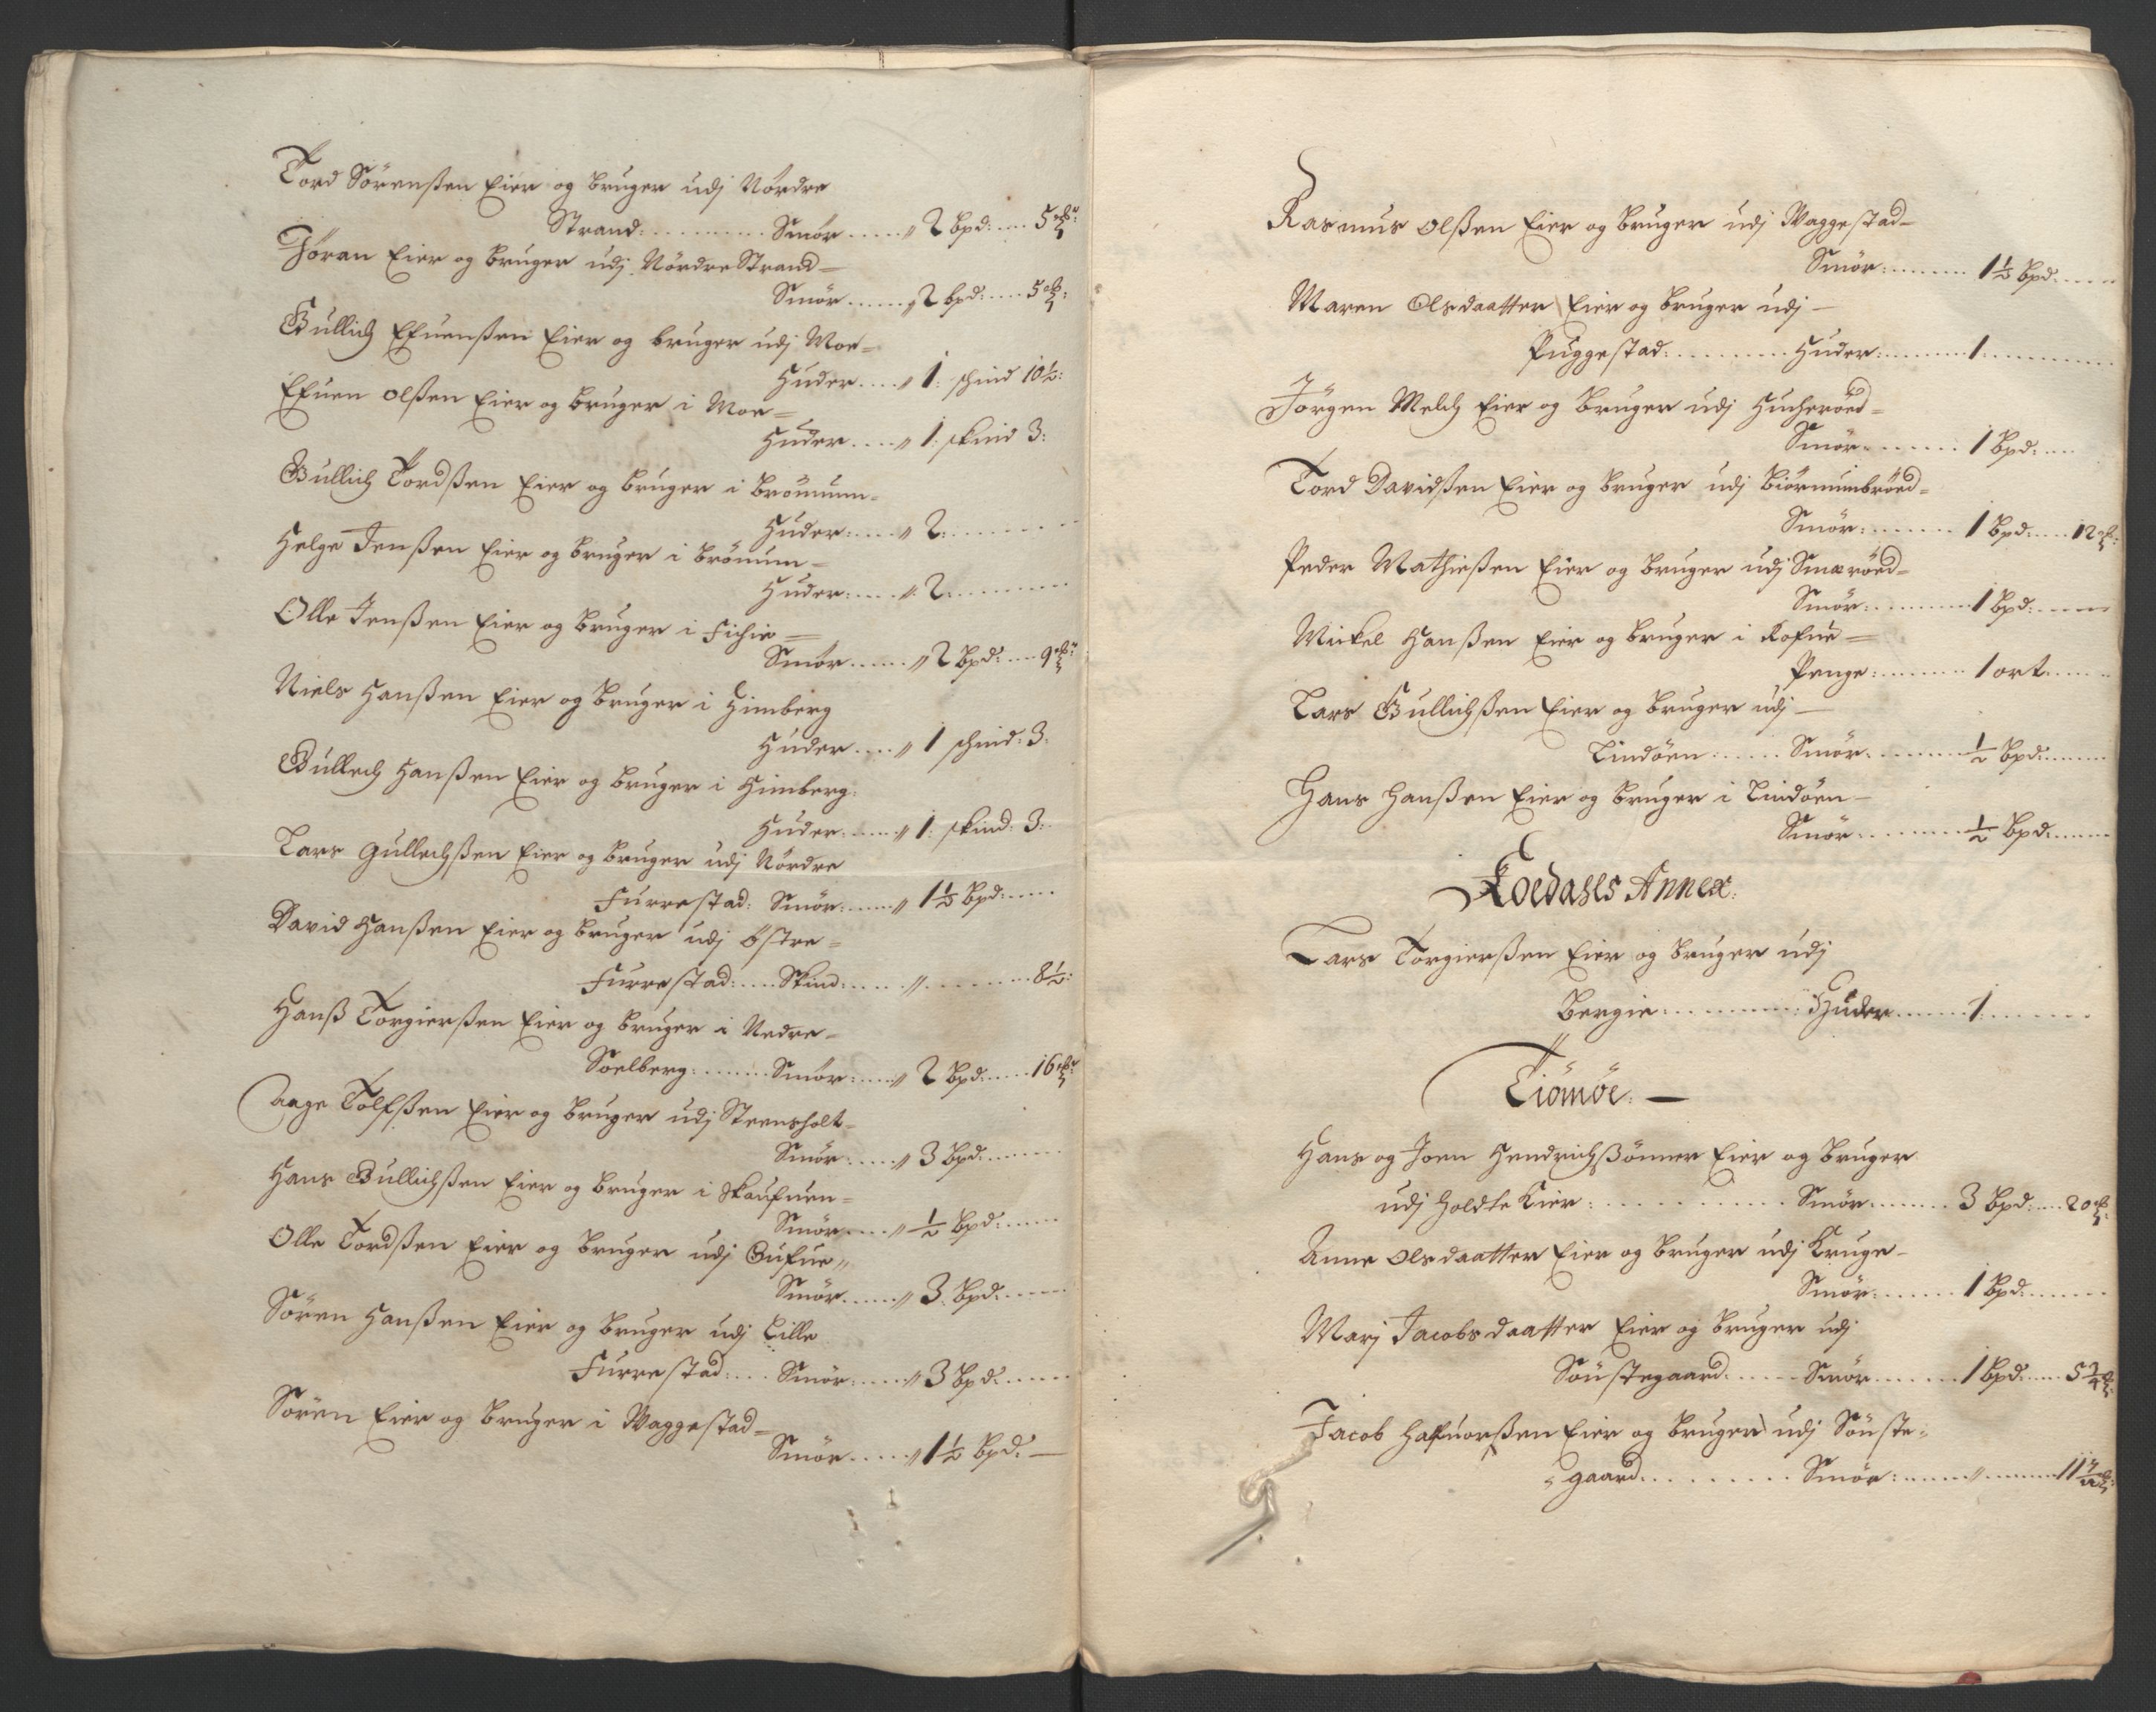 Tord Sörenßen Eier og bruger udj Nordre
Strand: ......... Smör ..... 2 bpd: .... 5 ℔:
Jöran Eier og bruger udj Nordre Strand
Smör ...... 2 bpd: .... 5 ℔:
Gullich Efuenßen Eier og bruger udj Moe
Huder .... 1: schind 10½:
Efuen Olßen Eier og bruger i Moe
Huder .... 1: skind 3:
Gullich Tordßen Eier og bruger i Brömum
Huder: .... 2: .......
Helge Jenßen Eier og bruger i Brömum
Huder: .... 2: .......
Olle Jenßen Eier og bruger i Fichie
Smör ...... 2 Bpd: .... 9 ℔:
Niels Hanßen Eier og bruger i Himberg
Huder .... 1 schind: 3:
Gullech Hanßen Eier og bruger i Himberg:
Huder: .... 1: skind: 3:
Lars Gullechßen Eier og bruger udj Nordre
Furrestad: Smör: .... 1½ Bpd: .....
David Hanßen Eier og bruger udj Östre
Furrestad: .... Skind: ..... 8½:
Hanß Torgierßen Eier og bruger i Nedre
Soelberg: ....... Smör: .... 2 Bpd: .... 16 ℔:
Aage Tolfßen Eier og bruger udj Steensholt
Smör: .... 3 Bpd: ......
Hans Gullichßen Eier og bruger i Skaufuen
Smör: .... ½ Bpd: ......
Olle Tordßen Eier og bruger udj Gufue
Smör ..... 3: Bpd: ......
Sören Hanßen Eier og bruger udj Lille
Furrestad: ... Smör: .... 3 Bpd: ......
Sören Eier og bruger i Waggestad
Smör ..... 1½ Bpd: —
Rasmus Olßen Eier og bruger udj Waggestad
Smör: ....... 1½ Bpd: .....
Maren Olsdaatter Eier og bruger udj —
Puggestad: ........ Huder: ....... 1: .........
Jörgen Melch Eier og bruger udj Hucheröed
Smör: ....... 1 Bpd: ....
Tord Davidßen Eier og bruger udj Biörnumbröed
Smör: ....... 1 Bpd: .... 12 ℔:
Peder Mathießen Eier og bruger udj Smaröed
Smör: ........ 1 Bpd: ......
Mickel Hanßen Eier og bruger i Rofue
Penge: ........ 1 ort: .....
Lars Gullichßen Eier og bruger udj —
Lindöen: ..... Smör: ....... ½ Bpd: ......
Hans Hanßen Eier og bruger i Lindöen —
Smör: ........ ½ Bpd: ......
Koedahls Annex:
Lars Torgierßen Eier og bruger udj
Bergie: .......... Huder ....... 1: .......
Tiömöe: —
Hans og Joen Hendrichßönner Eier og bruger
udj Holdte Kier: ........... Smör: ...... 3 Bpd: .... 20 ℔:
Anne Olsdaatter Eier og bruger udj Kruge —
Smör: ....... 1 Bpd: ......
Marj Jacobsdaatter Eier og bruger udj
Söustegaard: ..... Smör: ....... 1 Bpd: .... 5¾ ℔:
Jacob Hafuorßen Eier og bruger udj Söuste-
gaard: ......... Smör: ............ 11 ℔: